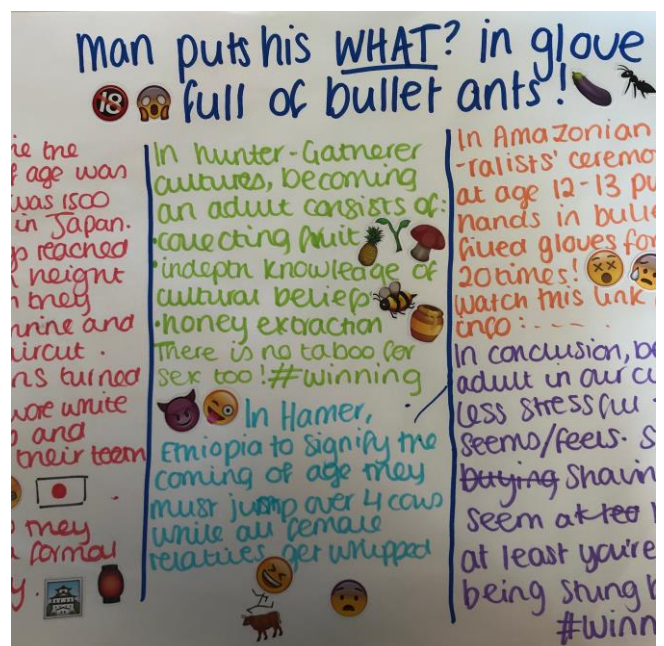 man puts his WHAT? in glove
full of bullet ants!
18
ie the
f age was
was 1500
in Japan.
reached
height
they
rine and
ircut.
ns turned
wore white
and
their teeth
they
formal
y.
In hunter-Gatherer
cultures, becoming
an adult consists of:
·collecting fruit
·indepth knowledge of
cultural beliefs
·honey extraction
There is no taboo for
sex too! #winning
In Hamer,
Ethiopia to signify the
coming of age they
must jump over 4 cows
while all female
relatives get whipped
In Amazonian
-ralists' ceremo
at age 12-13 pu
hands in bulle
filled gloves for
20times!
watch this link
info:----.
In conclusion, be
adult in our cu
less stressful
seems/feels. S
buying Shavin
seem at too
at least you're
being stung b
#winn